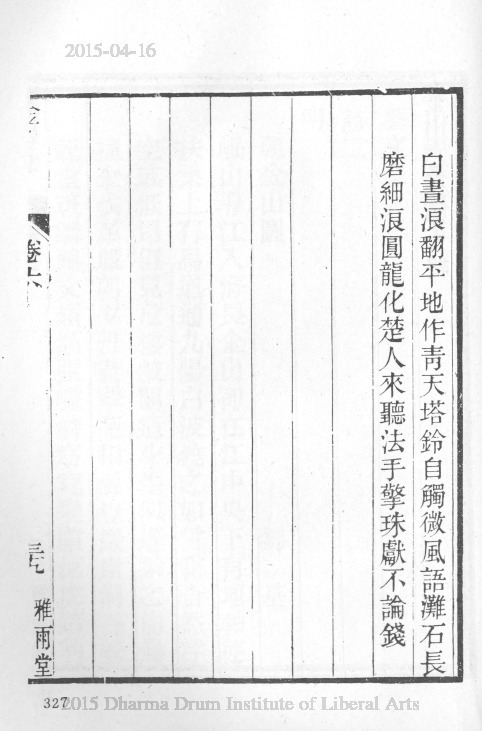 2015-04-16
白晝浪翻平地作靑天塔鈴自觸微風語灘石長
磨細浪圓龍化楚人來聽法手擎珠獻不論錢
卷六
雅雨堂
327
2015 Dharma Drum Institute of Liberal Arts